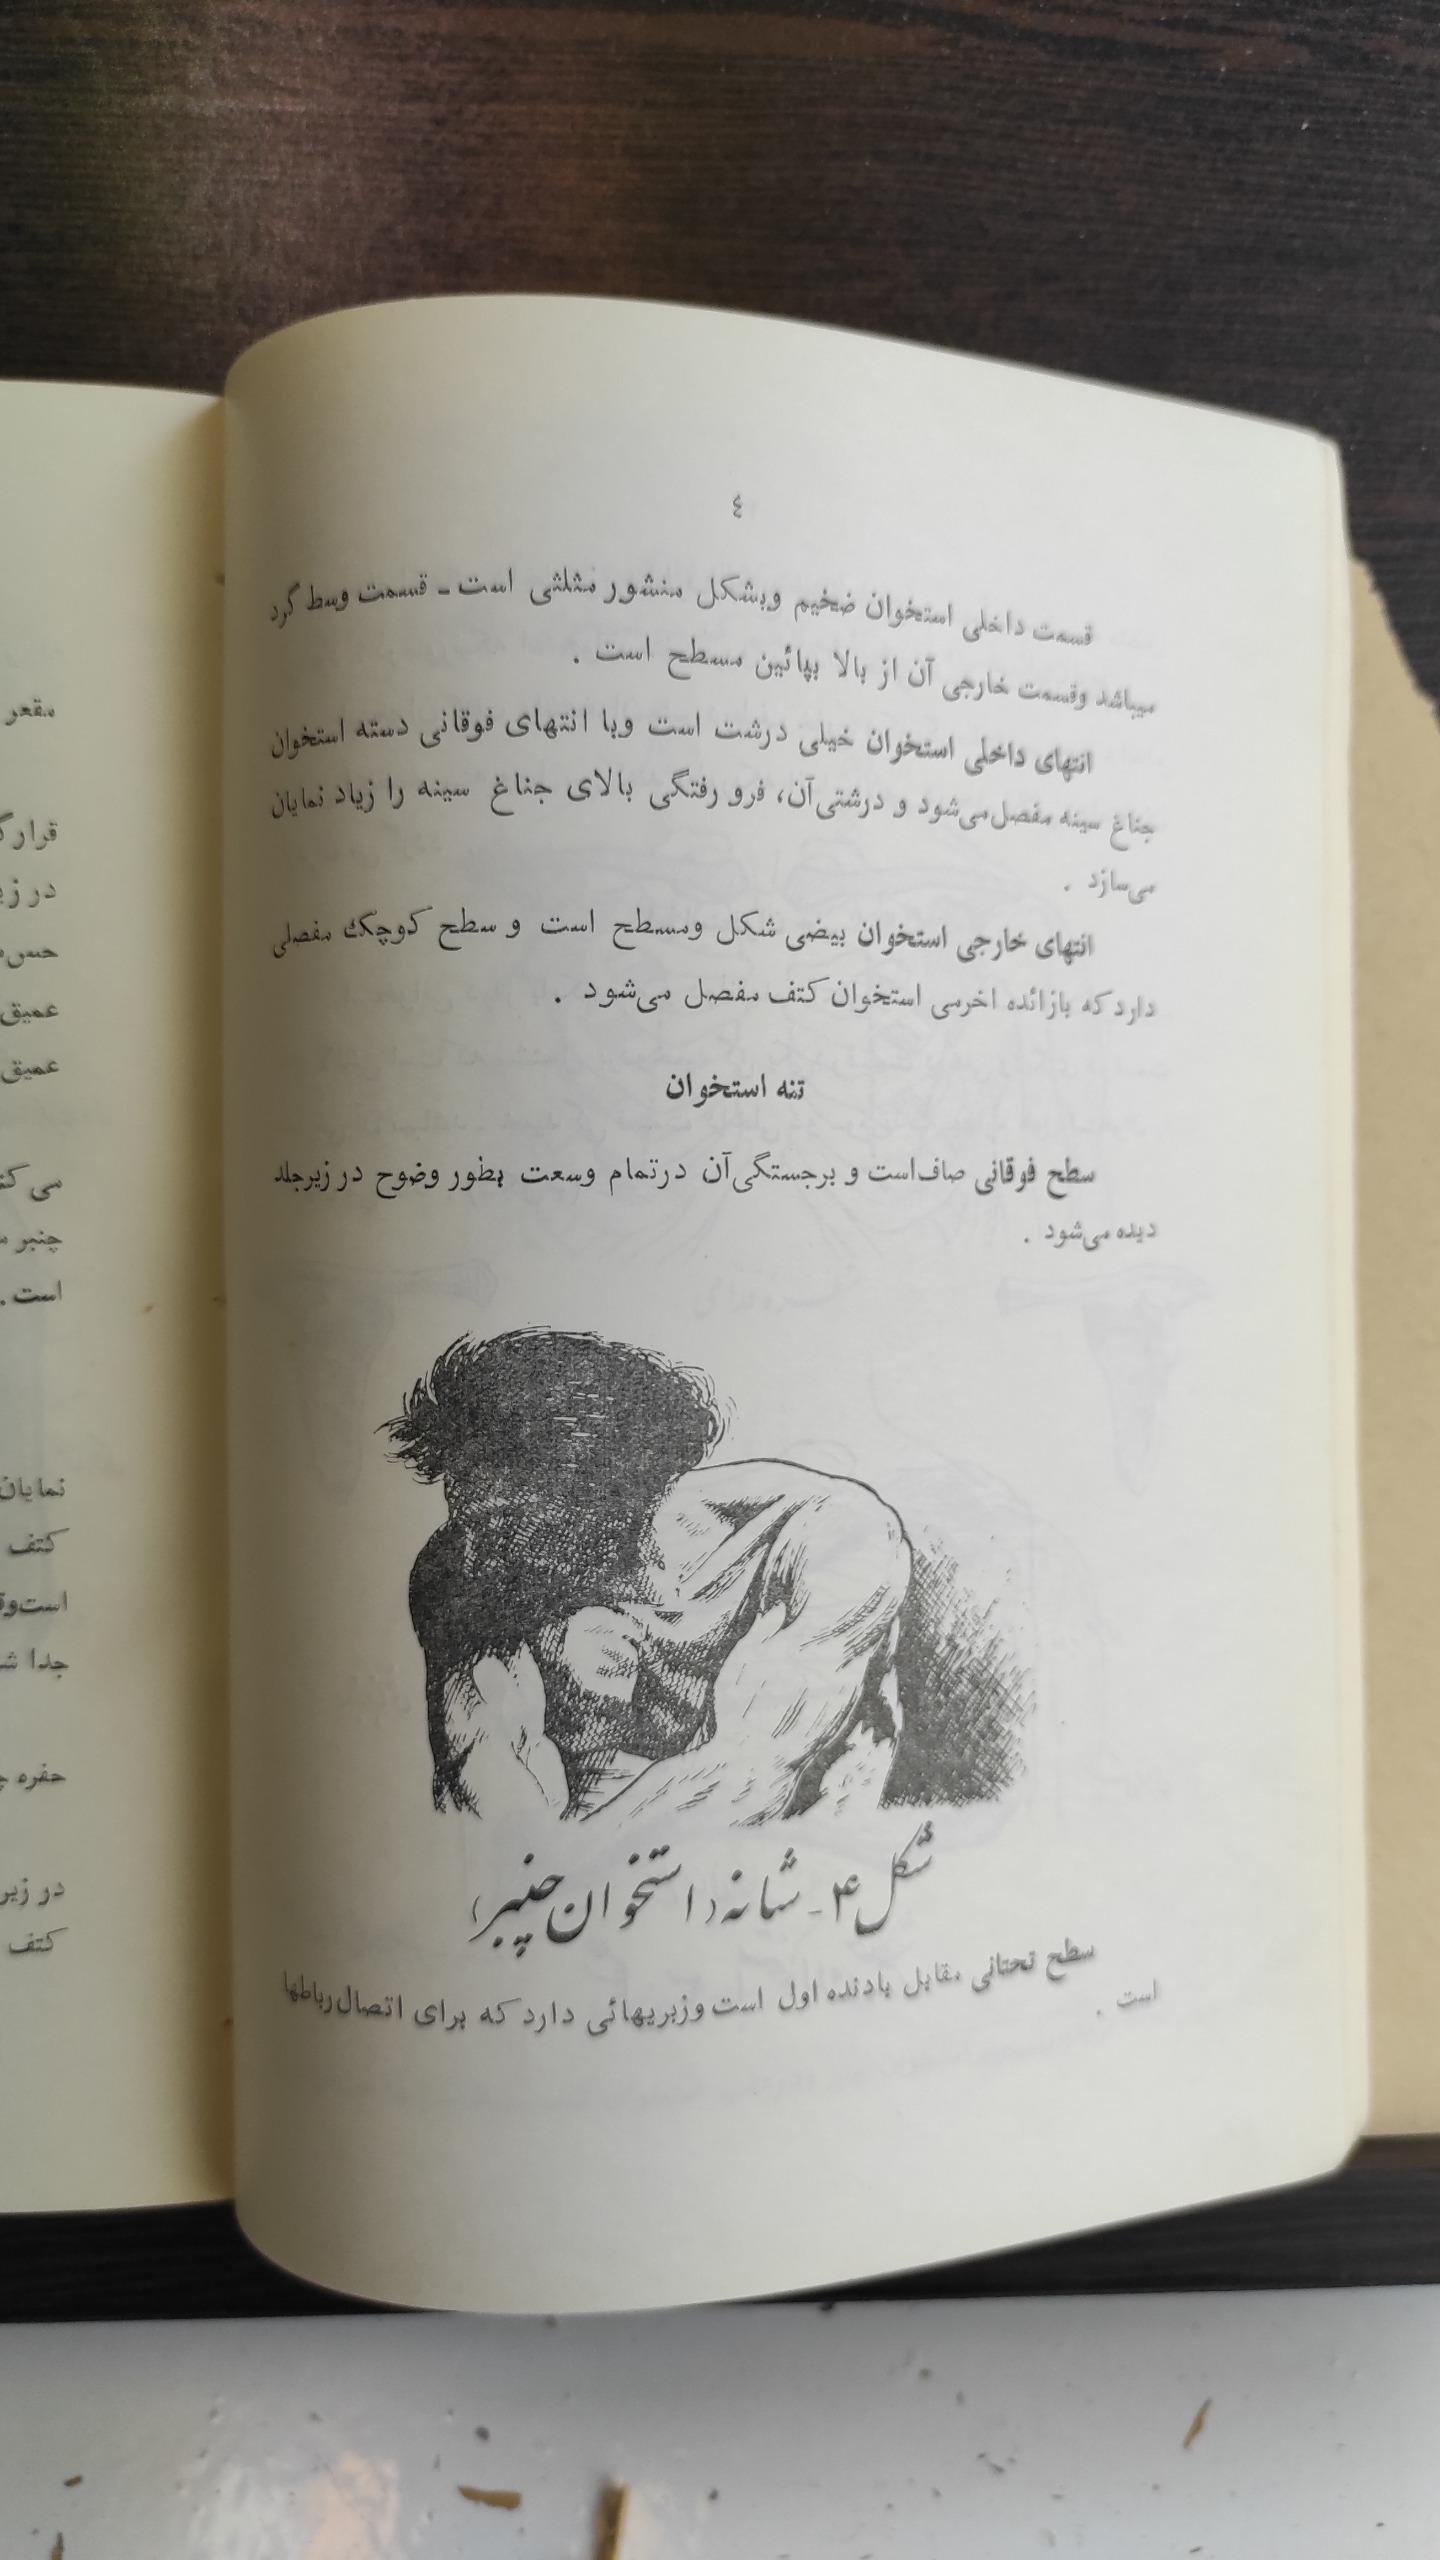 ٤
قسمت داخلی استخوان ضخیم وبشکل منشور مثلثی است ـ قسمت وسط گرد
میباشد وقسمت خارجی آن از بالا بپائین مسطح است .
انتهای داخلی استخوان خیلی درشت است وبا انتهای فوقانی دسته استخوان
جناغ سینه مفصل می‌شود و درشتی‌آن، فرو رفتگی بالای جناغ سینه را زیاد نمایان
می‌سازد .
انتهای خارجی استخوان بیضی شکل ومسطح است و سطح کوچک مفصلی
دارد که بازائده اخرمی استخوان کتف مفصل می‌شود .
تنه استخوان
سطح فوقانی صاف‌است و برجستگی‌آن درتمام وسعت بطور وضوح در زیرجلد
دیده می‌شود .
شکل ۴ ـ شانه (استخوان چنبر)
سطح تحتانی مقابل بادنده اول است وزبریهائی دارد که برای اتصال‌رباطها
است .
مقعر
در زیر
عمیق
عمیق
چنبر
است .
نمایان
کتف
جدا
حفره
در زیر
کتف